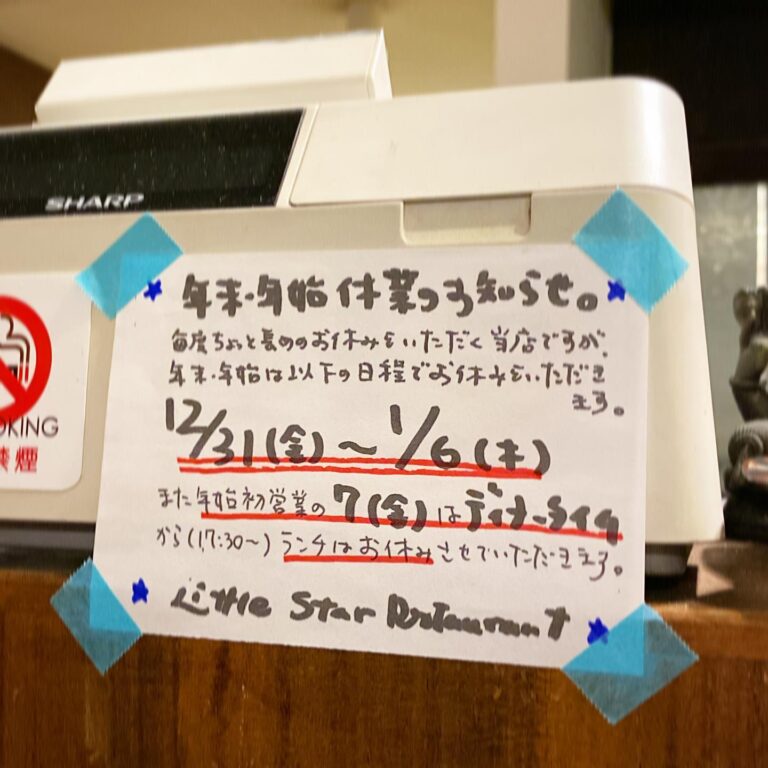 SHARP
年末・年始休業のお知らせ。
毎度ちょっと長めのお休みをいただく当店ですが、
年末・年始は以下の日程でお休みをいただき
ます。
12/31(金)～1/6(木)
また年始初営業の7(金)はディナータイム
から(17:30～)ランチはお休みさせていただきます。
Little Star Restaurant
OKING
禁煙